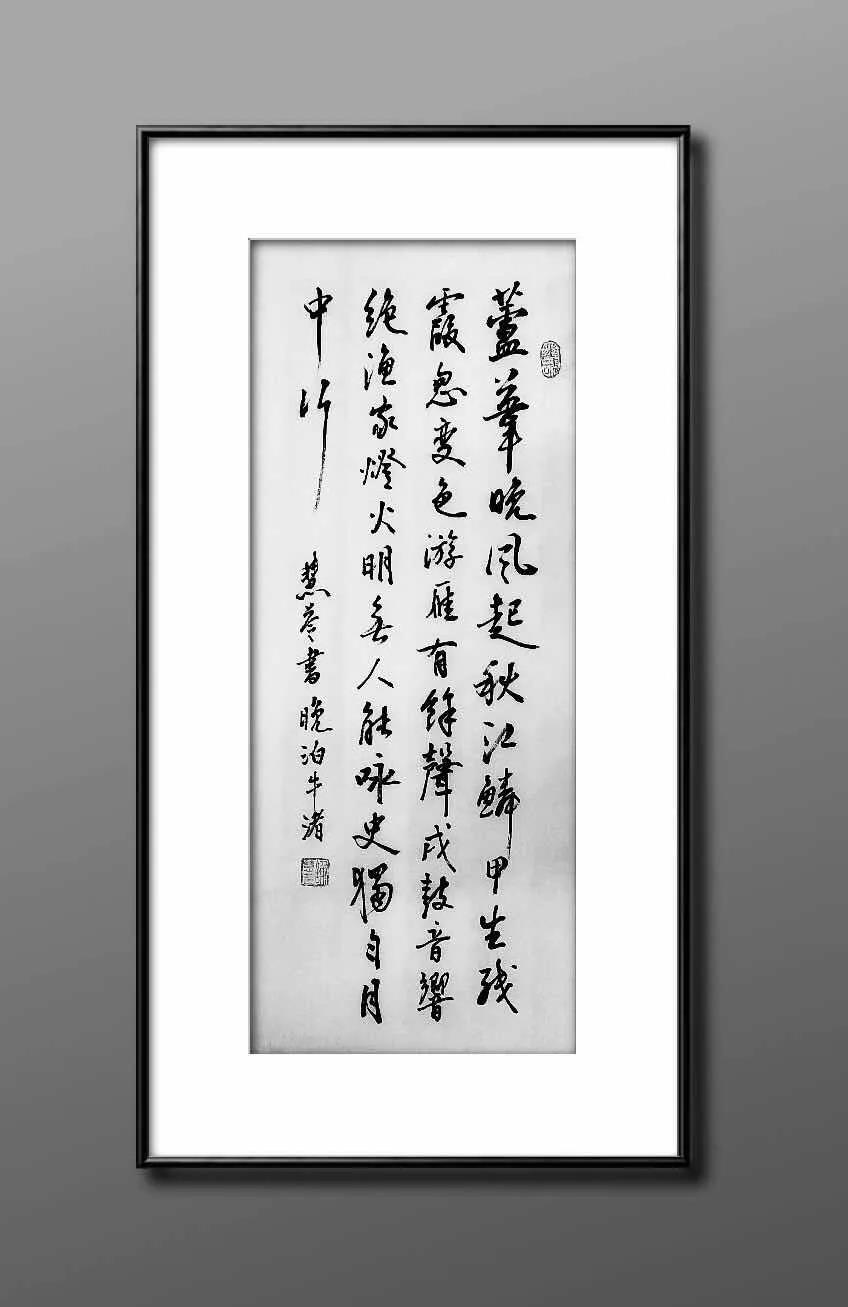 蘆葦晚風起秋江鱗甲生残
霞忽变色游雁有餘聲戍鼓音響
绝渔家燈火明無人能咏史獨自月
中行
慧書晚泊牛渚